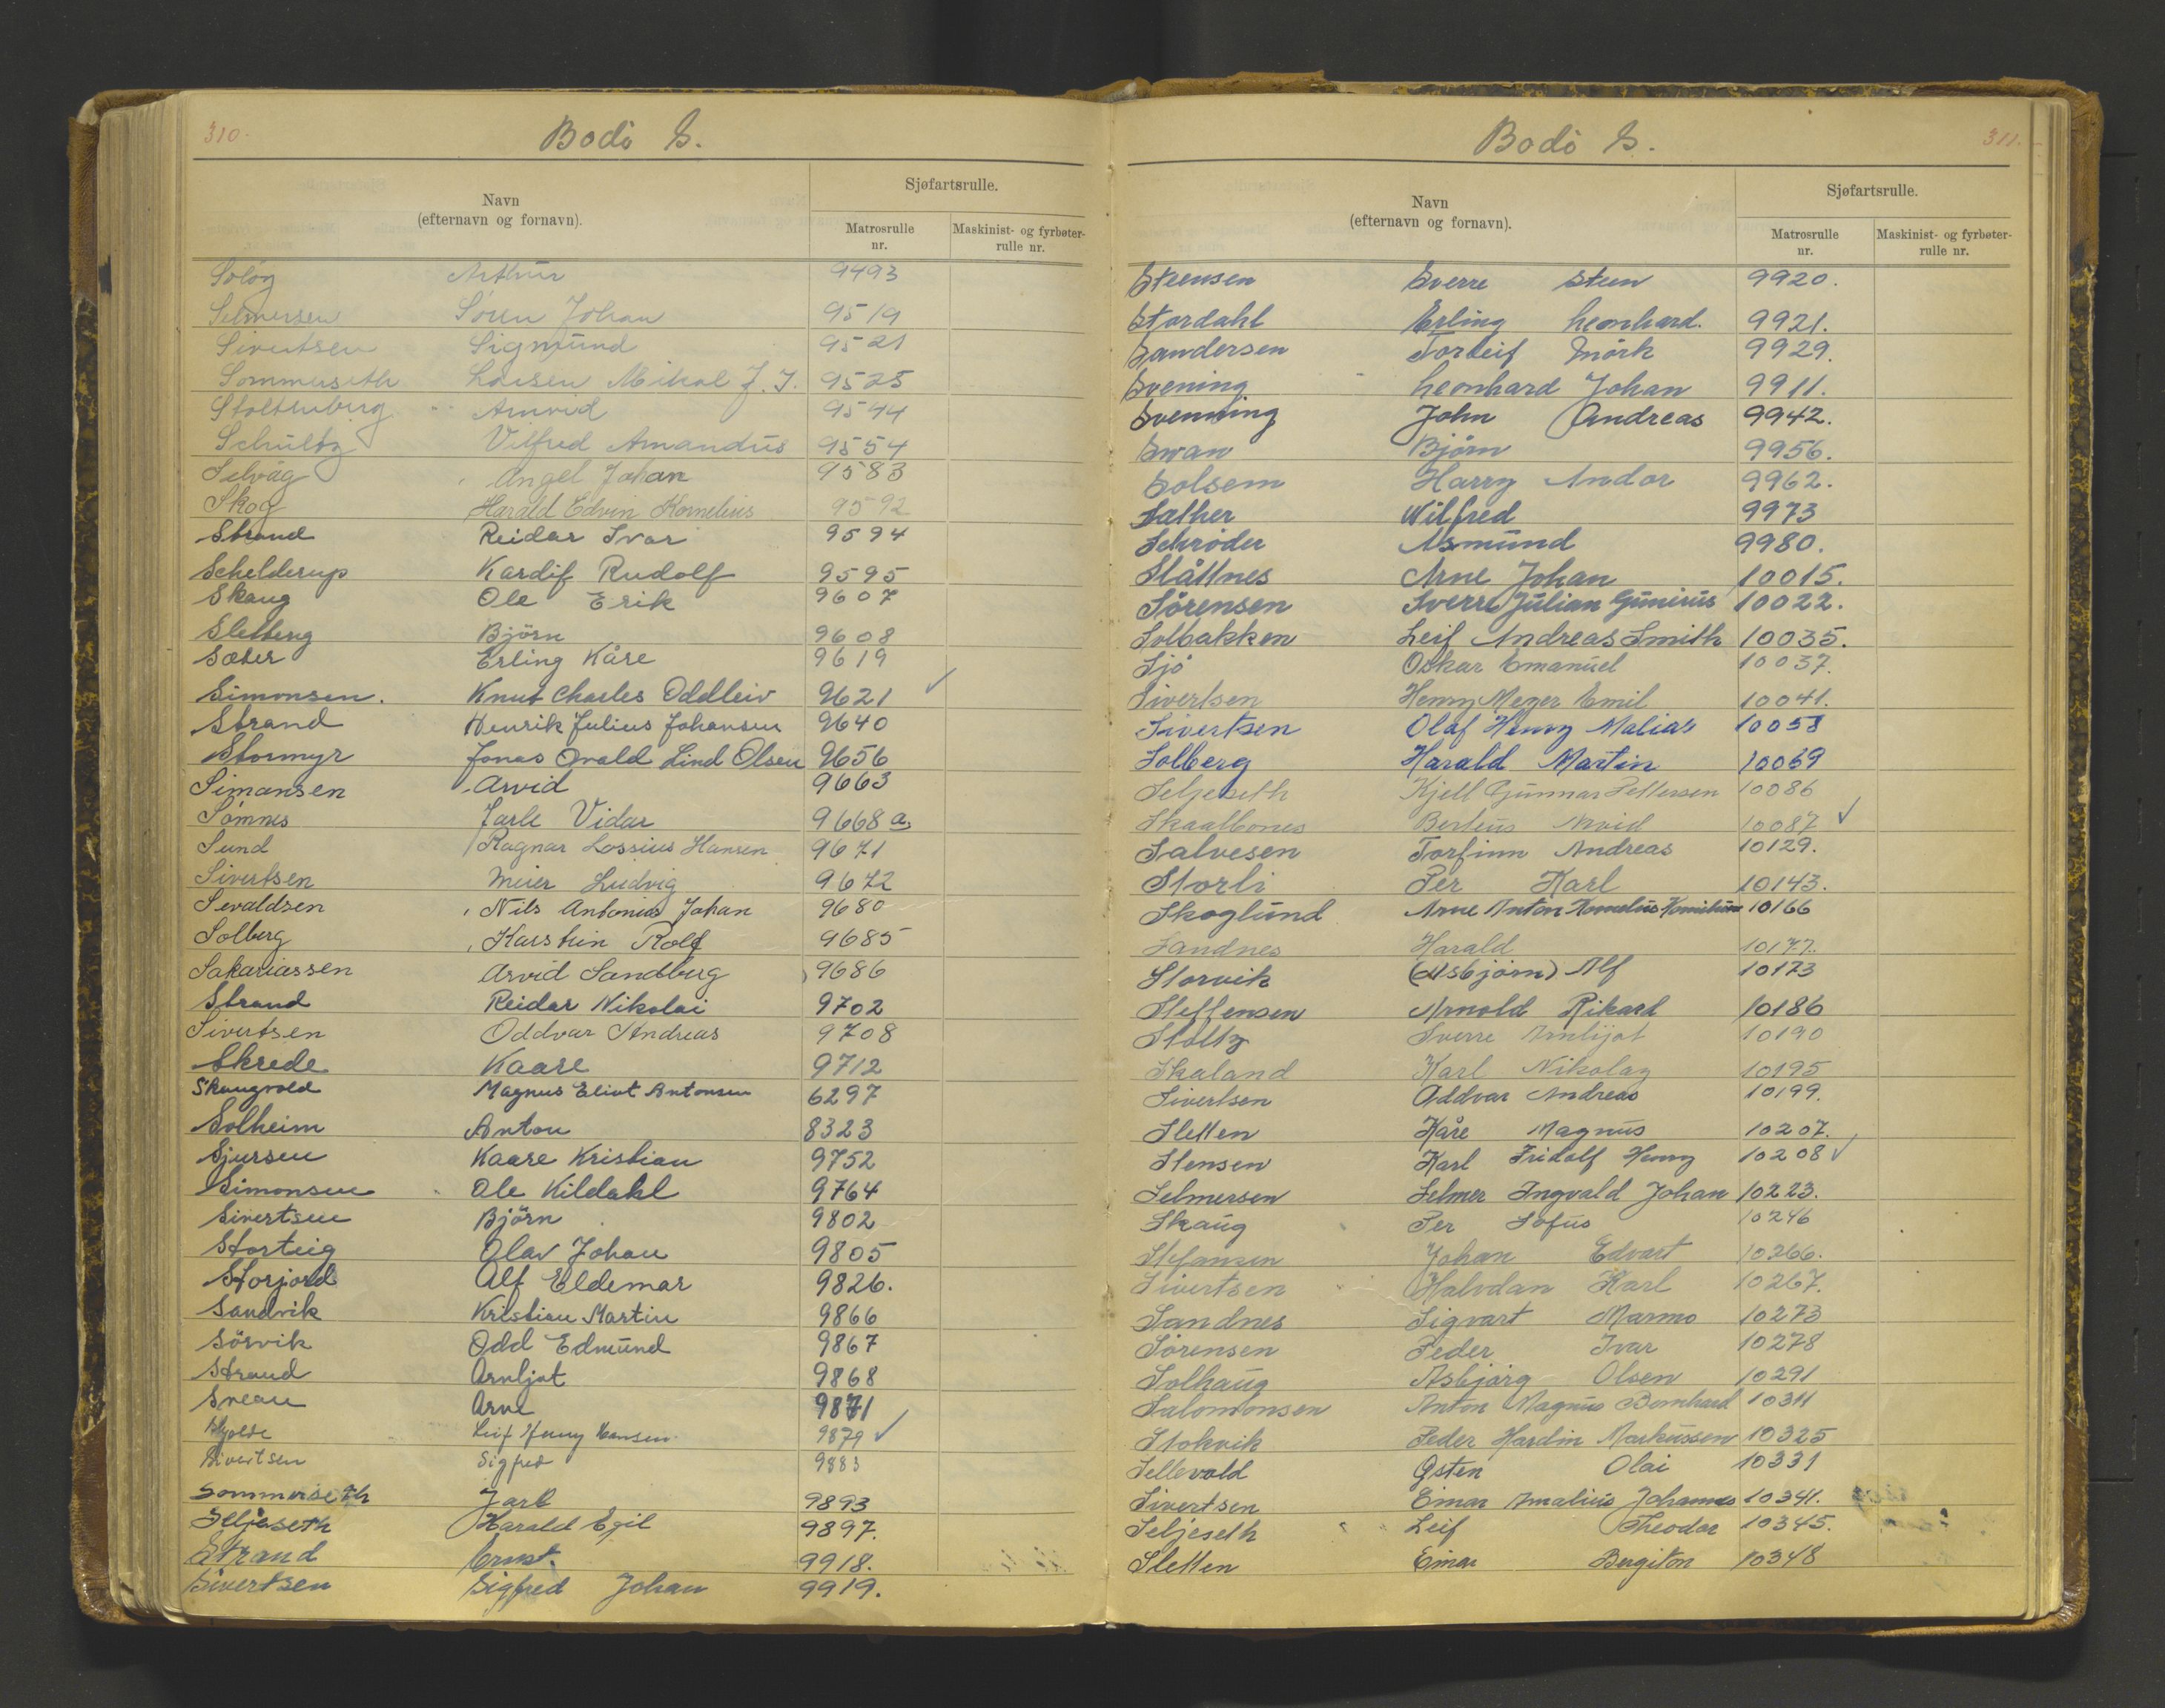 310.
Bodö S.
Navn
(efternavn og fornavn).
Sjøfartsrulle.
Matrosrulle
nr.
Maskinist- og fyrbøter-
rulle nr.
Solöy Arthur 9493
Selmersen Sören Johan 9519
Sivertsen Sigmund 9521
Sommerseth Larsen Mikal J. J. 9525
Stoltenberg Arnvid 9544
Schultz Vilfred Amandus 9554
Selvåg Angel Johan 9583
Skog Harald Edvin Kornelius 9592
Strand Reidar Ivar 9594
Schelderup Kardif Rudolf 9595
Skaug Ole Erik 9607
Sletteng Björn 9608
Sæter Erling Kåre 9619
Simonsen. Knut Charles Oddleiv 9621 ✓
Strand Henrik Julius Johansen 9640
Stormyr Jonas Ovald Lind Olsen 9656
Simonsen Arvid 9663
Sömnes Jarle Vidar 9668 a
Sund Ragnar Lossius Hansen 9671
Sivertsen Meier Ludvig 9672
Sevaldsen Nils Antonius Johan 9680
Solberg Karstein Rolf 9685
Sakariassen Arvid Sandberg 9686
Strand Reidar Nikolai 9702
Sivertsen Oddvar Andreas 9708
Skrede Kaare 9712
Skaugvold Magnus Eliot Antonsen 6297
Solheim Anton 8323
Sjursen Kaare Kristian 9752
Simonsen Ole Kildahl 9764
Sivertsen Björn 9802
Storteig Olav Johan 9805
Storjord Alf Eldemar 9826.
Sandvik Kristian Martin 9866
Sörvik Odd Edmund 9867
Strand Arnljot 9868
Svean Arne 9871
Leif Henry Hansen 9879 ✓
Sivertsen Sigfred 9883
Sommerseth Jarl 9893
Seljeseth Harald Egil 9897.
Strand Ernst. 9918.
Sivertsen Sigfred Johan 9919.
Bodö S.
311.
Navn
(efternavn og fornavn).
Sjøfartsrulle.
Matrosrulle
nr.
Maskinist- og fyrbøter-
rulle nr.
Steensen Sverre Steen 9920.
Stordahl Erling Leonhard. 9921.
Sandersen Torleif Mörk 9929.
Svening Leonhard Johan 9911.
Svenning John Andreas 9942.
Swan Björn 9956.
Solsem Harry Andor 9962.
Sæther Wilfred 9973
Schröder Asmund 9980.
Slåttnes Arne Johan 10015.
Sörensen Sverre Julian Gunirius 10022.
Solbakken Leif Andreas Smith 10035.
Sjö Oskar Emanuel 10037.
Sivertsen Henry Meyer Emil 10041.
Sivertsen Olaf Henry Malias 10058
Solberg Harald Martin 10069
Seljeseth Kjell Gunnar Pettersen 10086
Skaalbones Berteus Arvid 10087 ✓
Salvesen Torfinn Andreas 10129.
Storli Per Karl 10143.
Skoglund Arne Anton Kornelius 10166
Sandnes Harald 10177.
Storvik (Asbjörn) Alf 10173
Steffensen Arnold Rikard 10186
Stoltz Sverre Arnljot 10190
Skaland Karl Nikolay 10195
Sivertsen Oddvar Andreas 10199.
Sletten Kåre Magnus 10207.
Stensen Karl Fridolf Henry 10208 ✓
Selmersen Selmer Ingvald Johan 10223.
Skaug Per Sofus 10246
Stefansen Johan Edvart 10266.
Sivertsen Halvdan Karl 10267.
Sandnes Sigvart Marmo 10273
Sörensen Peder Ivar 10278
Solhaug Asbjörg Olsen 10291
Salomonsen Anton Magnus Bernhard 10311
Stokvik Peder Hardin Markussen 10325
Sellevold Östen Olai 10331
Sivertsen Einar Amalius Johannes 10341.
Seljeseth Leif Theodor 10345.
Sletten Einar Bergiton 10348